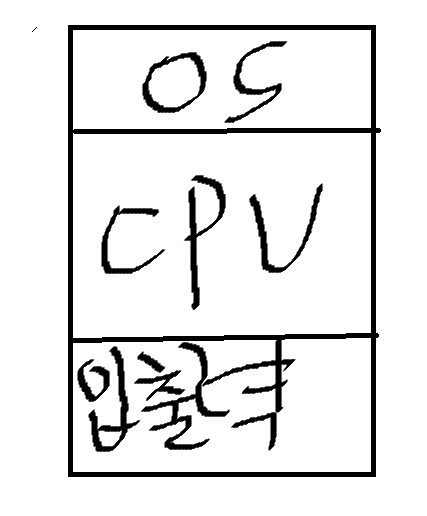 OS
CPU
입출력